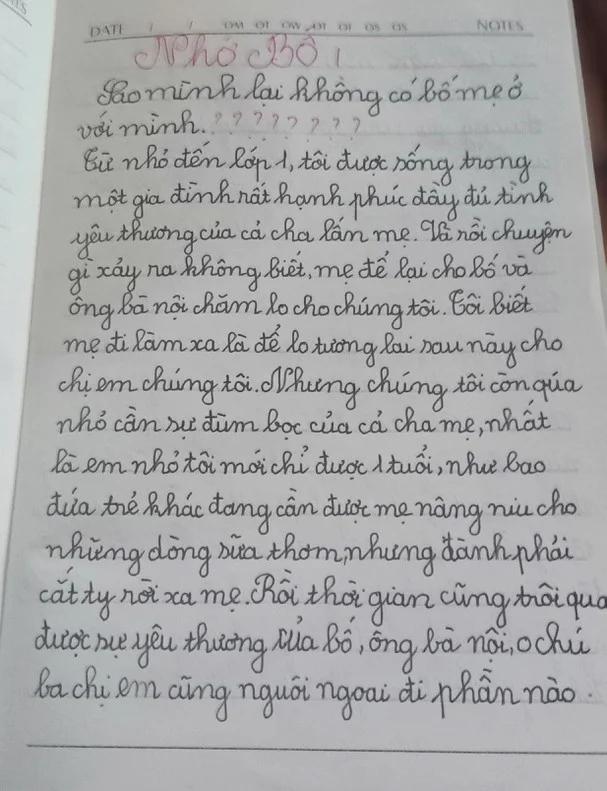 DATE / /
NOTES
Nhớ Bố!
Sao mình lại không có bố mẹ ở
với mình.????????
Từ nhỏ đến lớp 1, tôi được sống trong
một gia đình rất hạnh phúc đầy đủ tình
yêu thương của cả cha lẫn mẹ. Và rồi chuyện
gì xảy ra không biết, mẹ để lại cho bố và
ông bà nội chăm lo cho chúng tôi. Tôi biết
mẹ đi làm xa là để lo tương lai sau này cho
chị em chúng tôi. Nhưng chúng tôi còn qúa
nhỏ cần sự đùm bọc của cả cha mẹ, nhất
là em nhỏ tôi mới chỉ được 1 tuổi, như bao
đứa trẻ khác đang cần được mẹ nâng niu cho
những dòng sữa thơm, nhưng đành phải
cắt ty rời xa mẹ. Rồi thời gian cũng trôi qua
được sự yêu thương của bố, ông bà nội, o chú
ba chị em cũng nguôi ngoai đi phần nào.